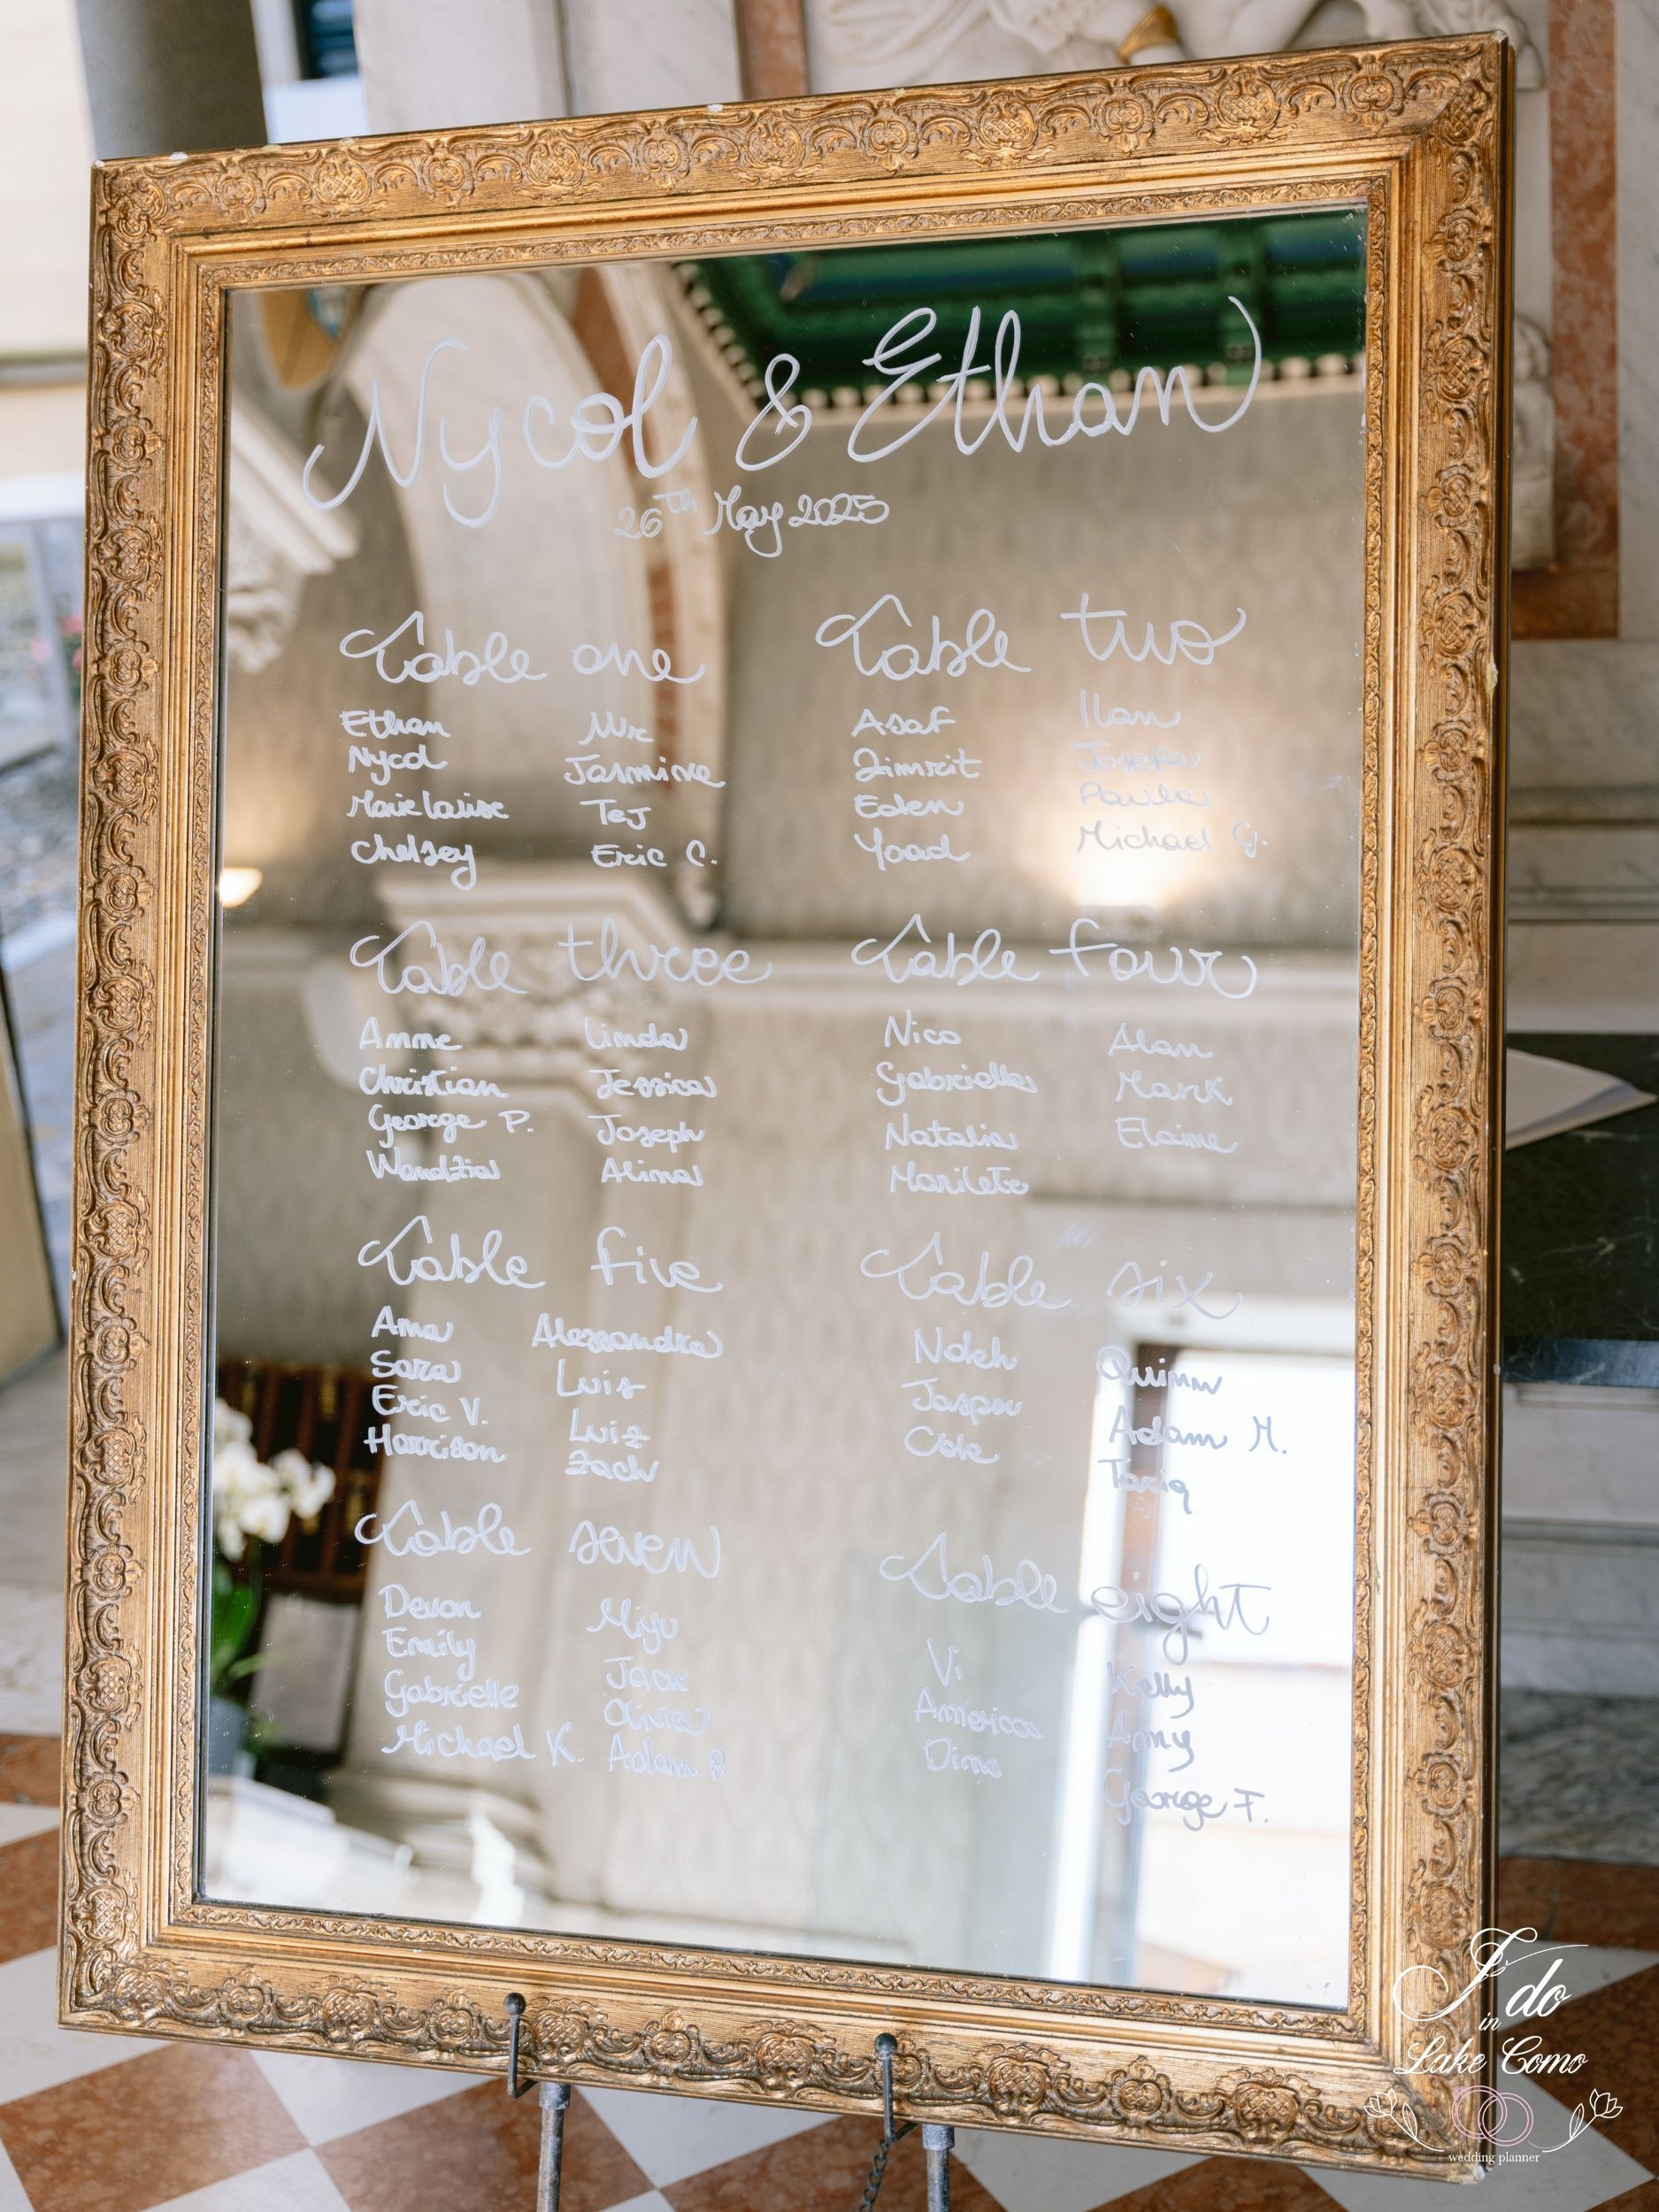 Nycol & Ethan
26th May 2025
Table one
Ethan Nic
Nycol Jasmine
Marie Louise Tej
Chelsey Eric C.
Table two
Asaf Ilan
Zimrit Josefa
Eden Paula
Yoad Michael G.
Table three
Anne Linda
Christian Jessica
George P. Joseph
Wandzia Alina
Table four
Nico Alan
Gabriella Mark
Natalia Elaine
Marilete
Table five
Ana Alessandra
Sara Luis
Eric V. Luiz
Harrison Zach
Table six
Noleh Quinn
Jasper Adam M.
Cole Tariq
Table seven
Devon Miju
Emily Jack
Gabrielle Olivia
Michael K. Adam P.
Table eight
Vi Kelly
America Amy
Dina George F.
I do
in
Lake Como
wedding planner